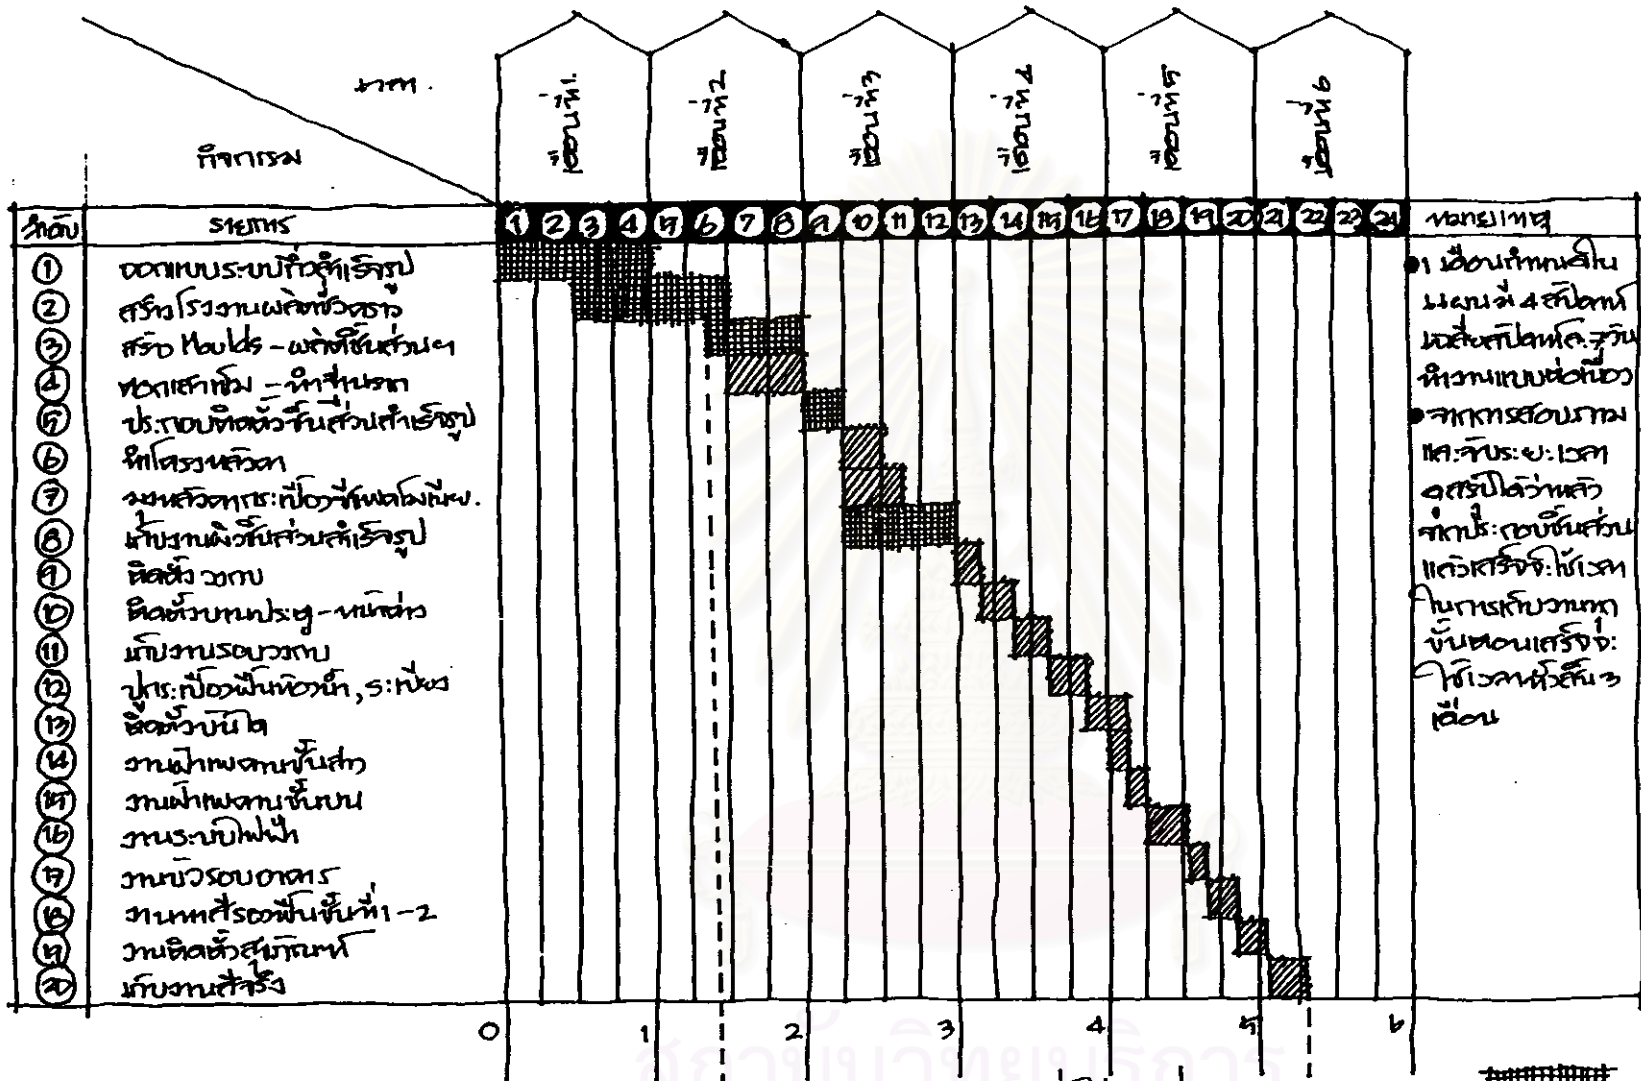 เวลา.
กิจกรรม
เดือนที่1.
เดือนที่2
เดือนที่3
เดือนที่4
เดือนที่5
เดือนที่6
ลำดับ รายการ 1 2 3 4 5 6 7 8 9 10 11 12 13 14 15 16 17 18 19 20 21 22 23 24 หมายเหตุ
1 ออกแบบระบบสำเร็จรูป
2 สร้างโรงงานผลิตชั่วคราว
3 สร้าง Moulds - ผลิตชิ้นส่วนฯ
4 ตอกเสาเข็ม - ทำฐานราก
5 ประกอบติดตั้งชิ้นส่วนสำเร็จรูป
6 ทำโครงหลังคา
7 มุงหลังคากระเบื้องซีแพคโมเนีย.
8 เก็บงานผิวชิ้นส่วนสำเร็จรูป
9 ติดตั้งวงกบ
10 ติดตั้งบานประตู - หน้าต่าง
11 เก็บงานรอบวงกบ
12 ปูกระเบื้องพื้นห้องน้ำ, ระเบียง
13 ติดตั้งบันได
14 งานฝ้าเพดานชั้นล่าง
15 งานฝ้าเพดานชั้นบน
16 งานระบบไฟฟ้า
17 งานบัวรอบอาคาร
18 งานทาสีรองพื้นชั้นที่1-2
19 งานติดตั้งสุขภัณฑ์
20 เก็บงานสีจริง
1 เดือนกำหนดใน
แผนมี 4 สัปดาห์
เฉลี่ยสัปดาห์ละ 7 วัน
ทำงานแบบต่อเนื่อง
จากการสอบถาม
และจับระยะเวลา
สรุปได้ว่าหลัง
จากประกอบชิ้นส่วน
แล้วเสร็จจะใช้เวลา
ในการเก็บงานทุก
ขั้นตอนเสร็จจะ
ใช้เวลาทั้งสิ้น 3
เดือน
0 1 2 3 4 5 6
สถาบันวิทยบริการ